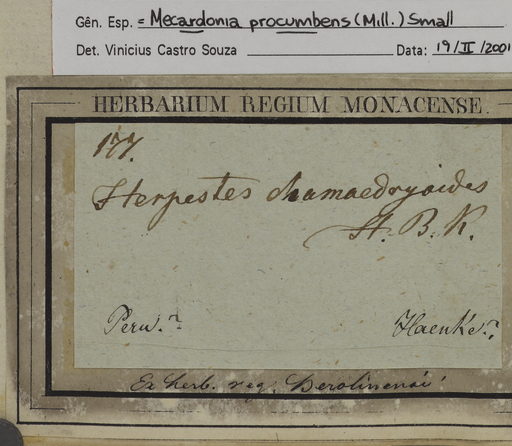 Gên. Esp. = Mecardonia procumbens (Mill.) Small
Det. Vinicius Castro Souza Data: 19/II/2001
HERBARIUM REGIUM MONACENSE.
177.
Herpestes chamaedryoides
H. B. K.
Peru.? Haenke?
Ex herb. reg. Berolinensi